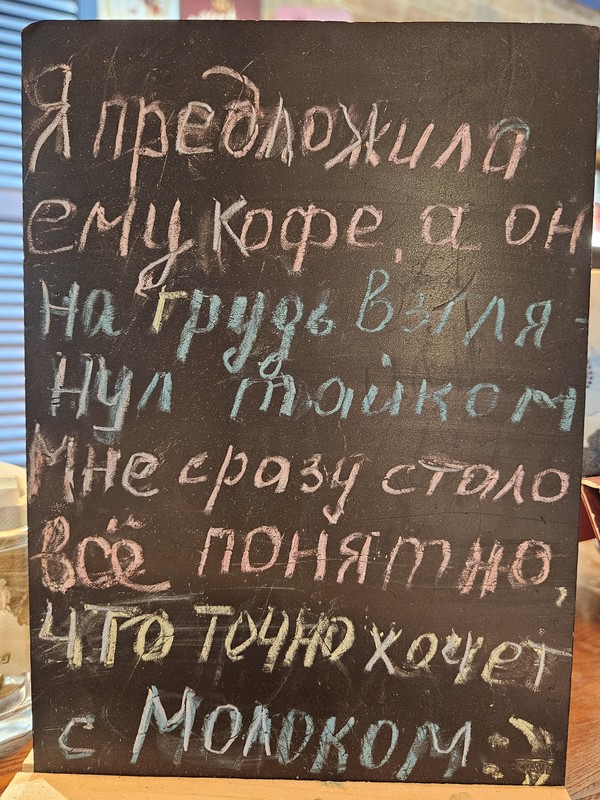 Я предложила
ему кофе, а он
на грудь взгля-
нул тайком
Мне сразу стало
всё понятно,
что точно хочет
с молоком :)